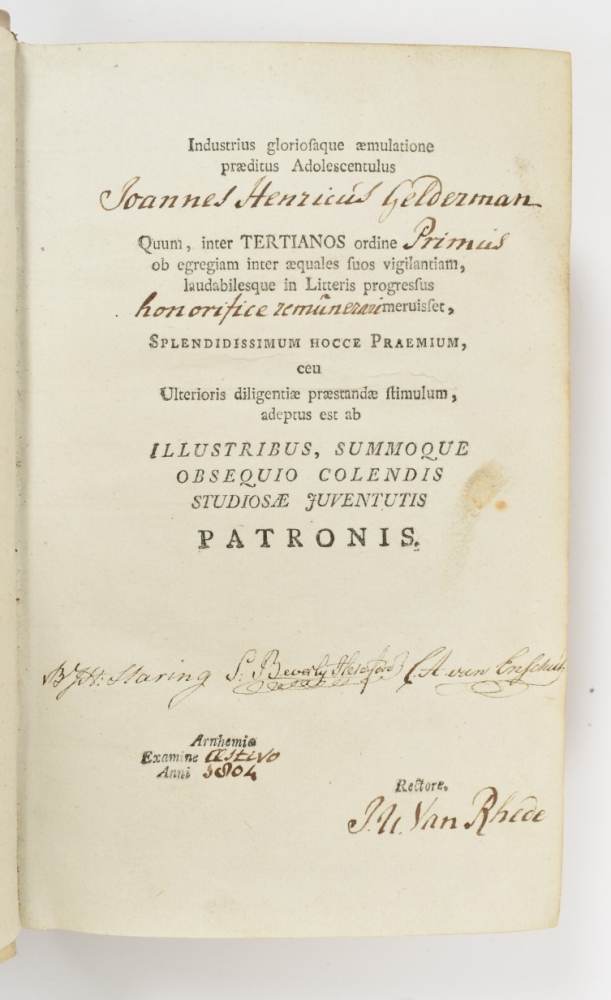 Industrius glorioſaque æmulatione
præditus Adolescentulus
Joannes Henricus Gelderman
Quum, inter TERTIANOS ordine Primus
ob egregiam inter æquales ſuos vigilantiam,
laudabilesque in Litteris progresſus
honorifice remunerari meruisſet,
SPLENDIDISSIMUM HOCCE PRAEMIUM,
ceu
Ulterioris diligentiæ præstandæ ſtimulum,
adeptus est ab
ILLUSTRIBUS, SUMMOQUE
OBSEQUIO COLENDIS
STUDIOSÆ JUVENTUTIS
PATRONIS.
Staring S. Beverly C.A. van Enschut
Arnhemiæ
Examine æstivo
Anni 1804
Rectore.
J.U. Van Rhede